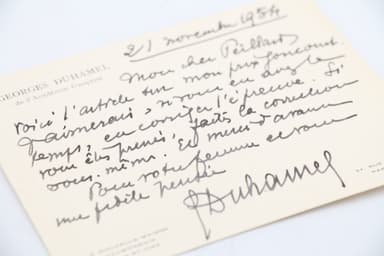 GEORGES DUHAMEL
de l'Académie Française
21 novembre 1954
Mon cher Peillard
voici l'article sur mon prix Goncourt.
J'aimerais, si vous en avez le
temps, en corriger l'épreuve. Si
vous êtes pressé, faites la correction
vous-même. Et merci d'avance
Pour votre femme et vous
ma fidèle pensée
GDuhamel